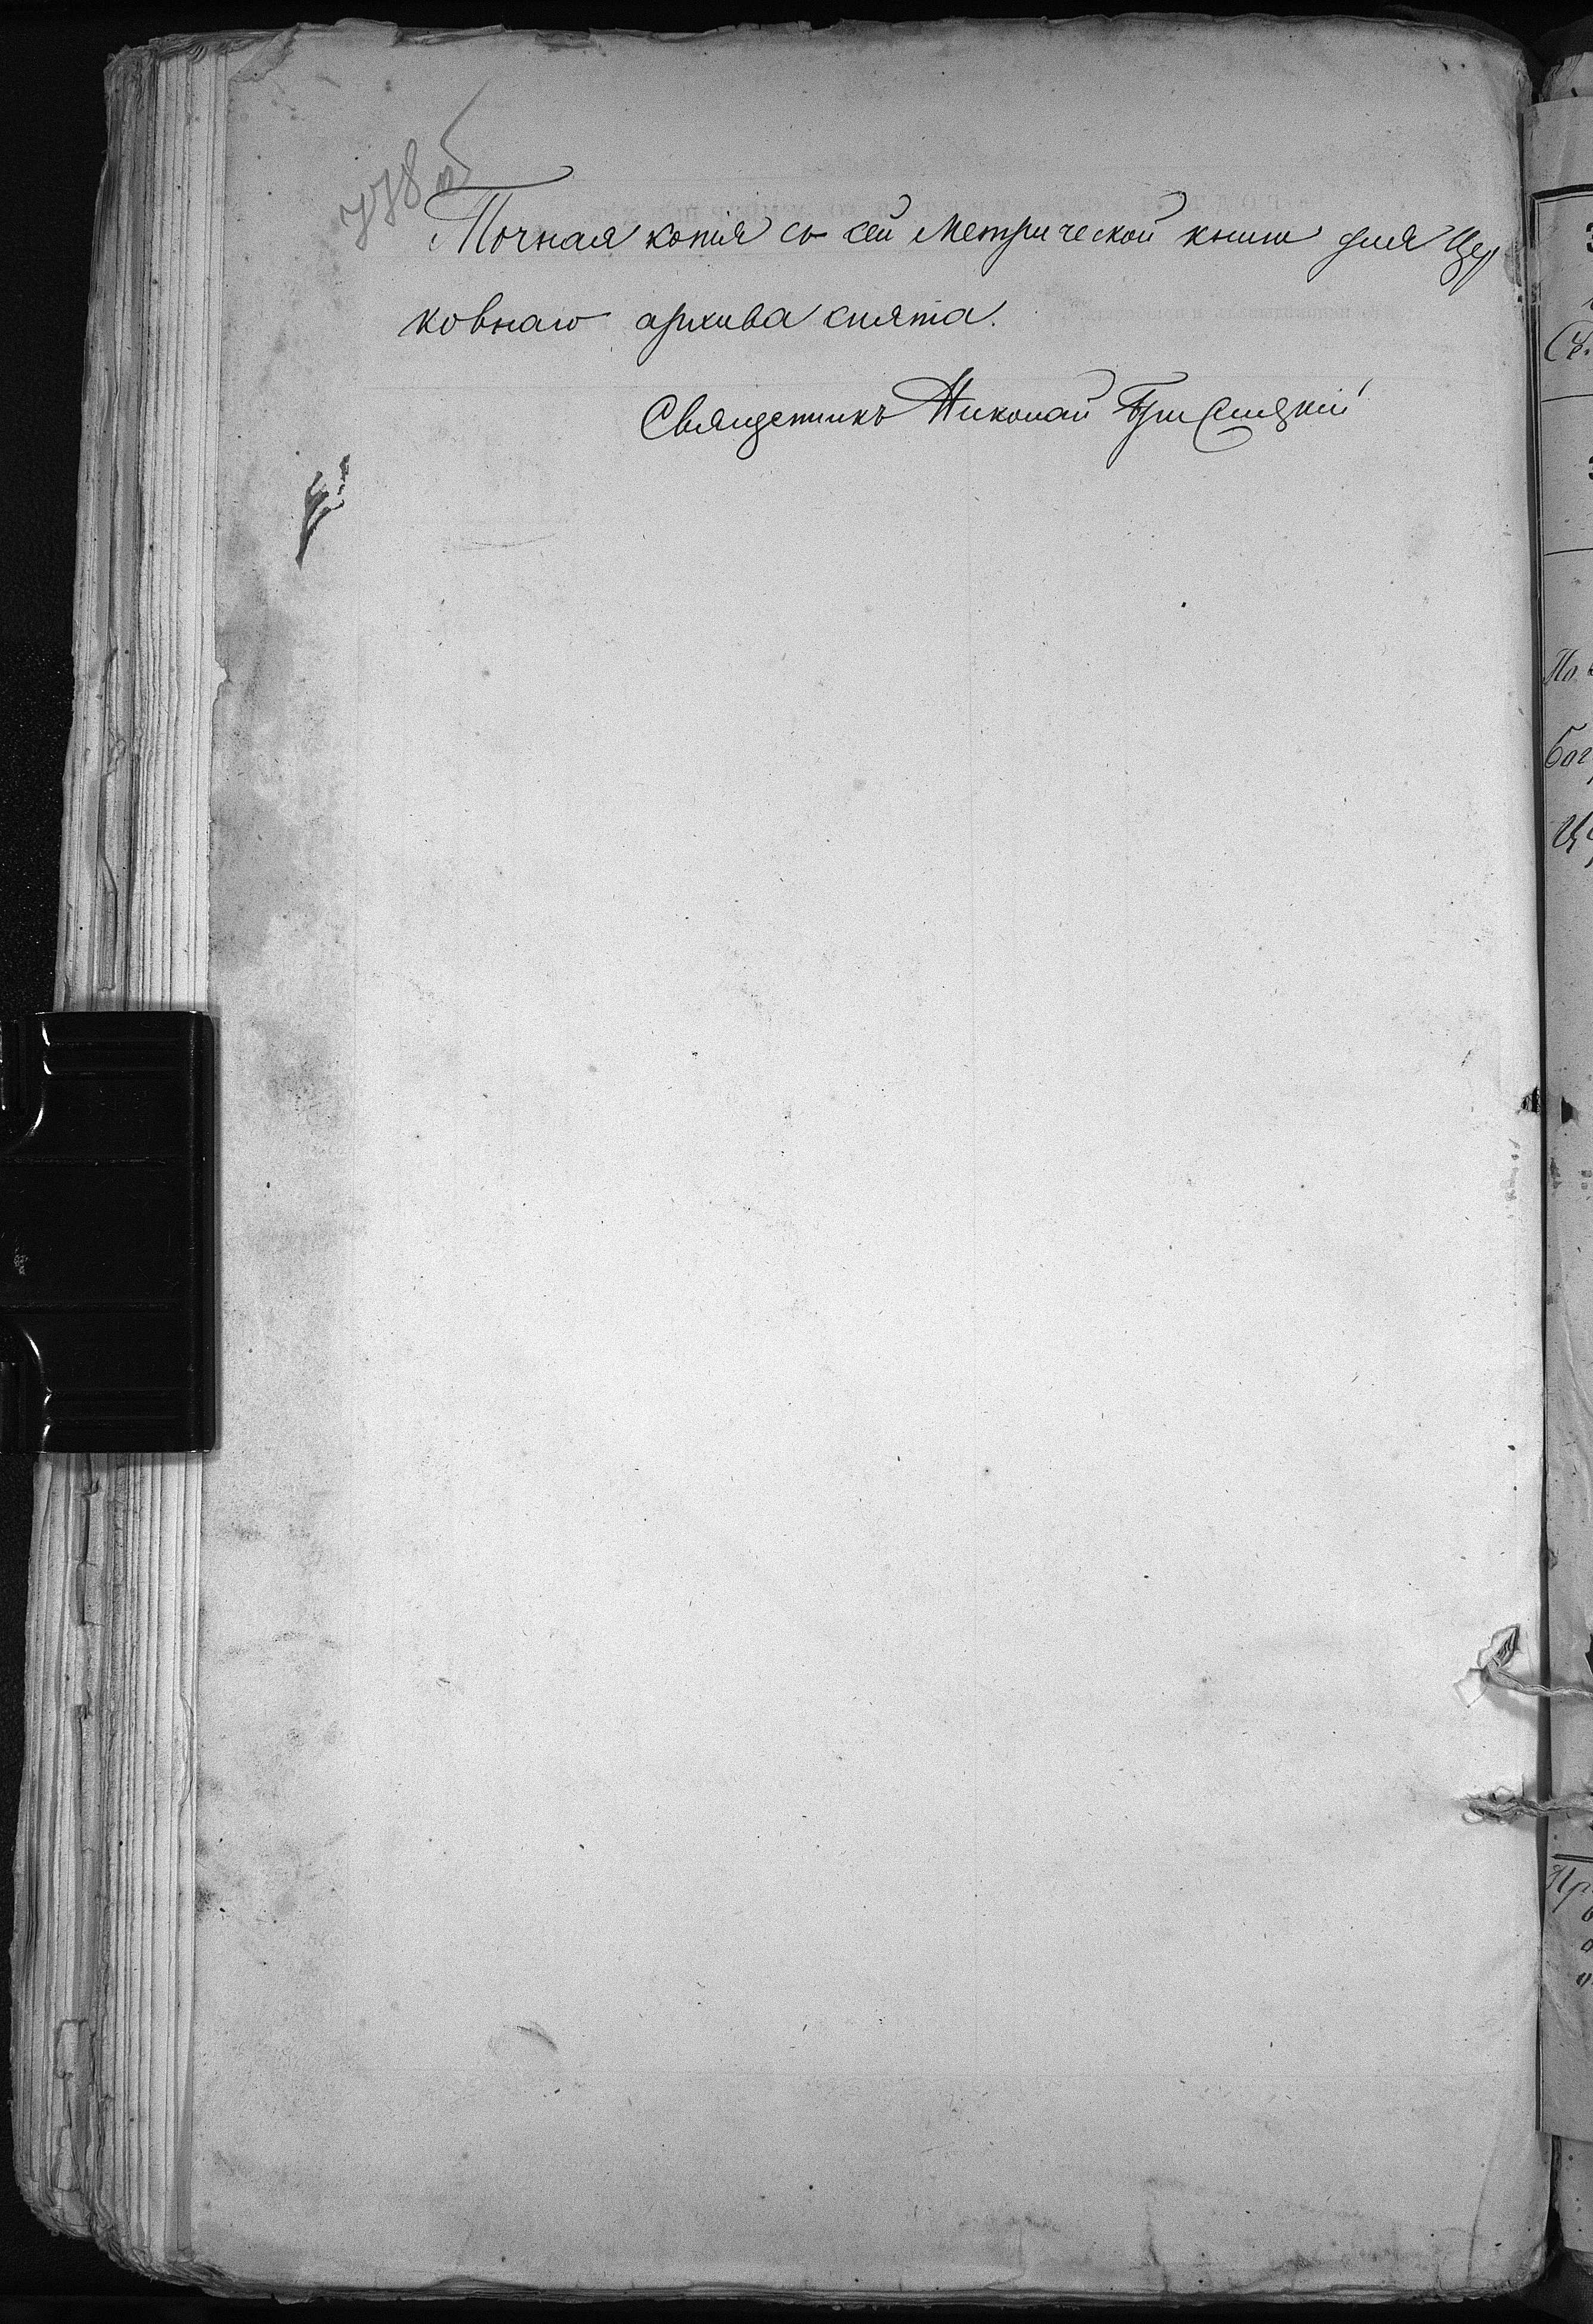 778 об
Точная копія съ сей метрической книги для Цер
ковнаго архива снята.
Священникъ Николай
По
Бог